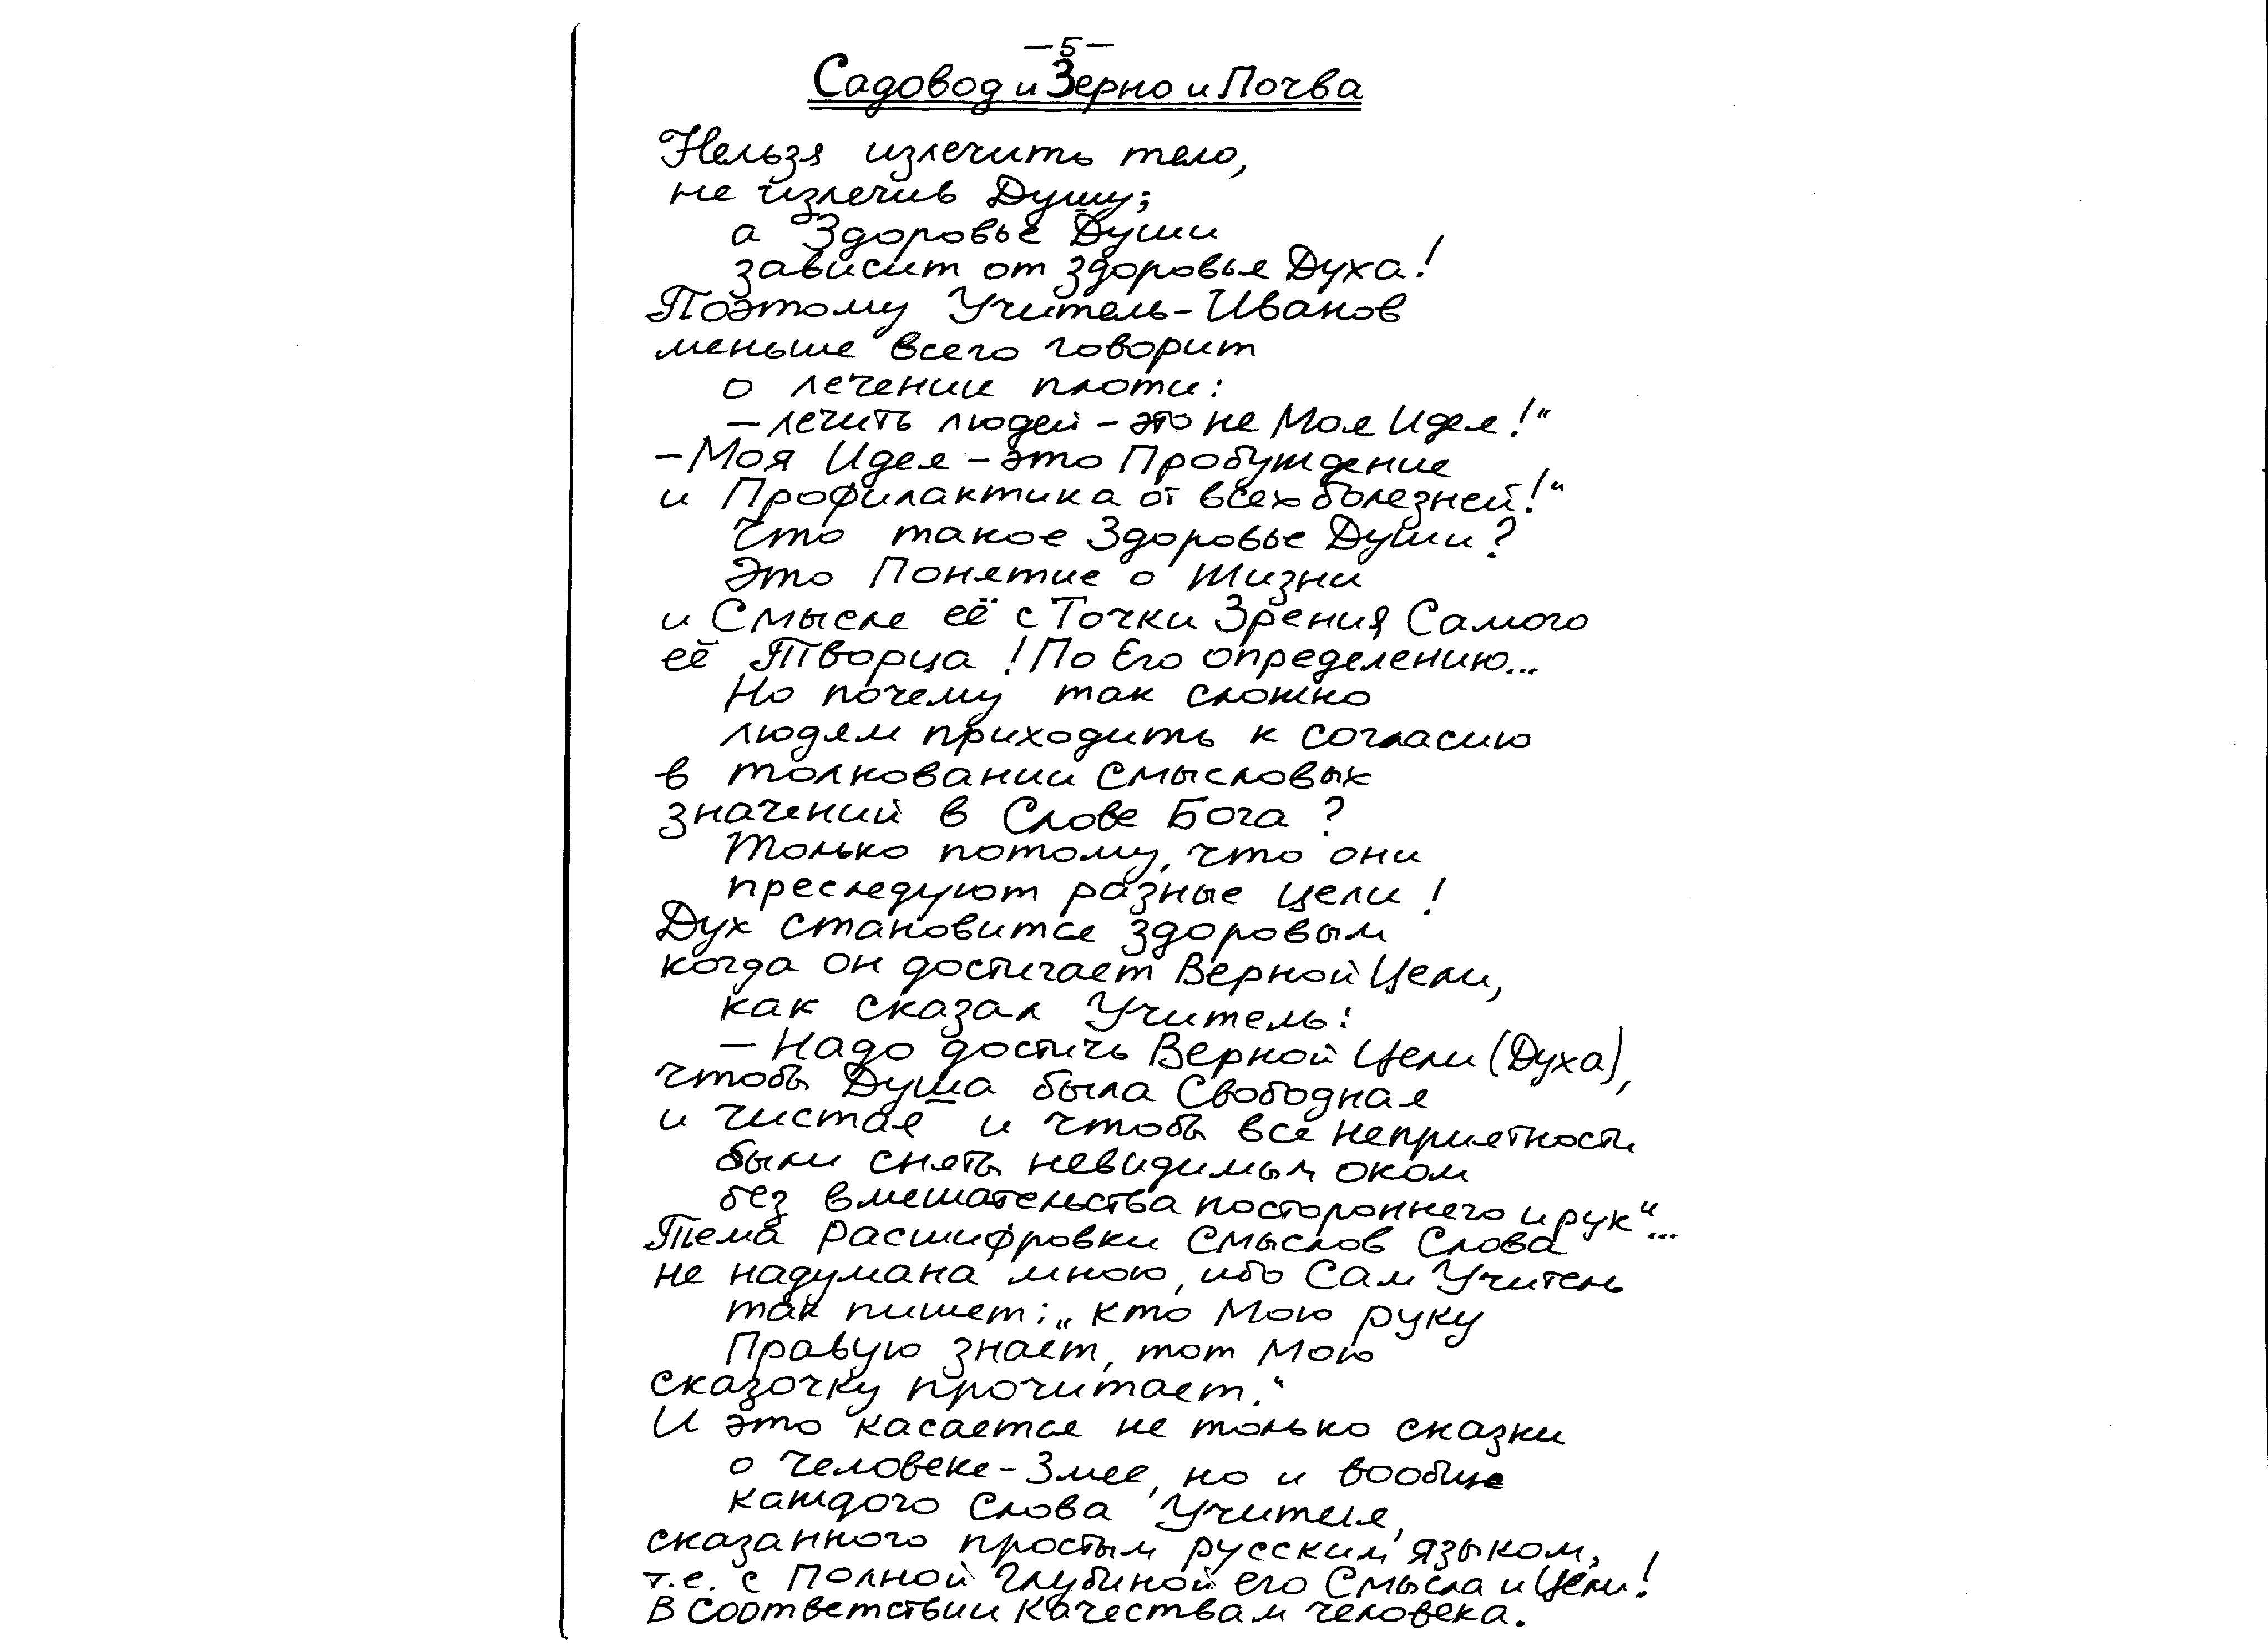 —5—
Садовод и Зерно и Почва
Нельзя излечить тело,
не излечив Душу;
а Здоровье Души
зависит от здоровья Духа!
Поэтому Учитель-Иванов
меньше всего говорит
о лечении плоти:
— лечить людей – это не Моя Идея!“
– Моя Идея – это Пробуждение
и Профилактика от всех болезней!“
Что такое Здоровье Души?
Это Понятие о Жизни
и Смысле её с Точки Зрения Самого
её Творца! По Его определению...
Но почему так сложно
людям приходить к согласию
в толковании смысловых
значений в Слове Бога?
Только потому, что они
преследуют разные цели!
Дух становится здоровым
когда он достигает Верной Цели,
как сказал Учитель:
— Надо достичь Верной Цели (Духа),
чтобы Душа была Свободная
и чистая и чтобы все неприятности
были сняты невидимым оком
без вмешательства постороннего и рук“...
Тема Расшифровки Смыслов Слова
не надумана мною, ибо Сам Учитель
так пишет: „кто Мою руку
Правую знает, тот Мою
сказочку прочитает.“
И это касается не только сказки
о Человеке-Змее, но и вообще
каждого Слова Учителя,
сказанного простым русским языком,
т.е. с Полной Глубиной его Смысла и Цели!
В соответствии Качествам человека.